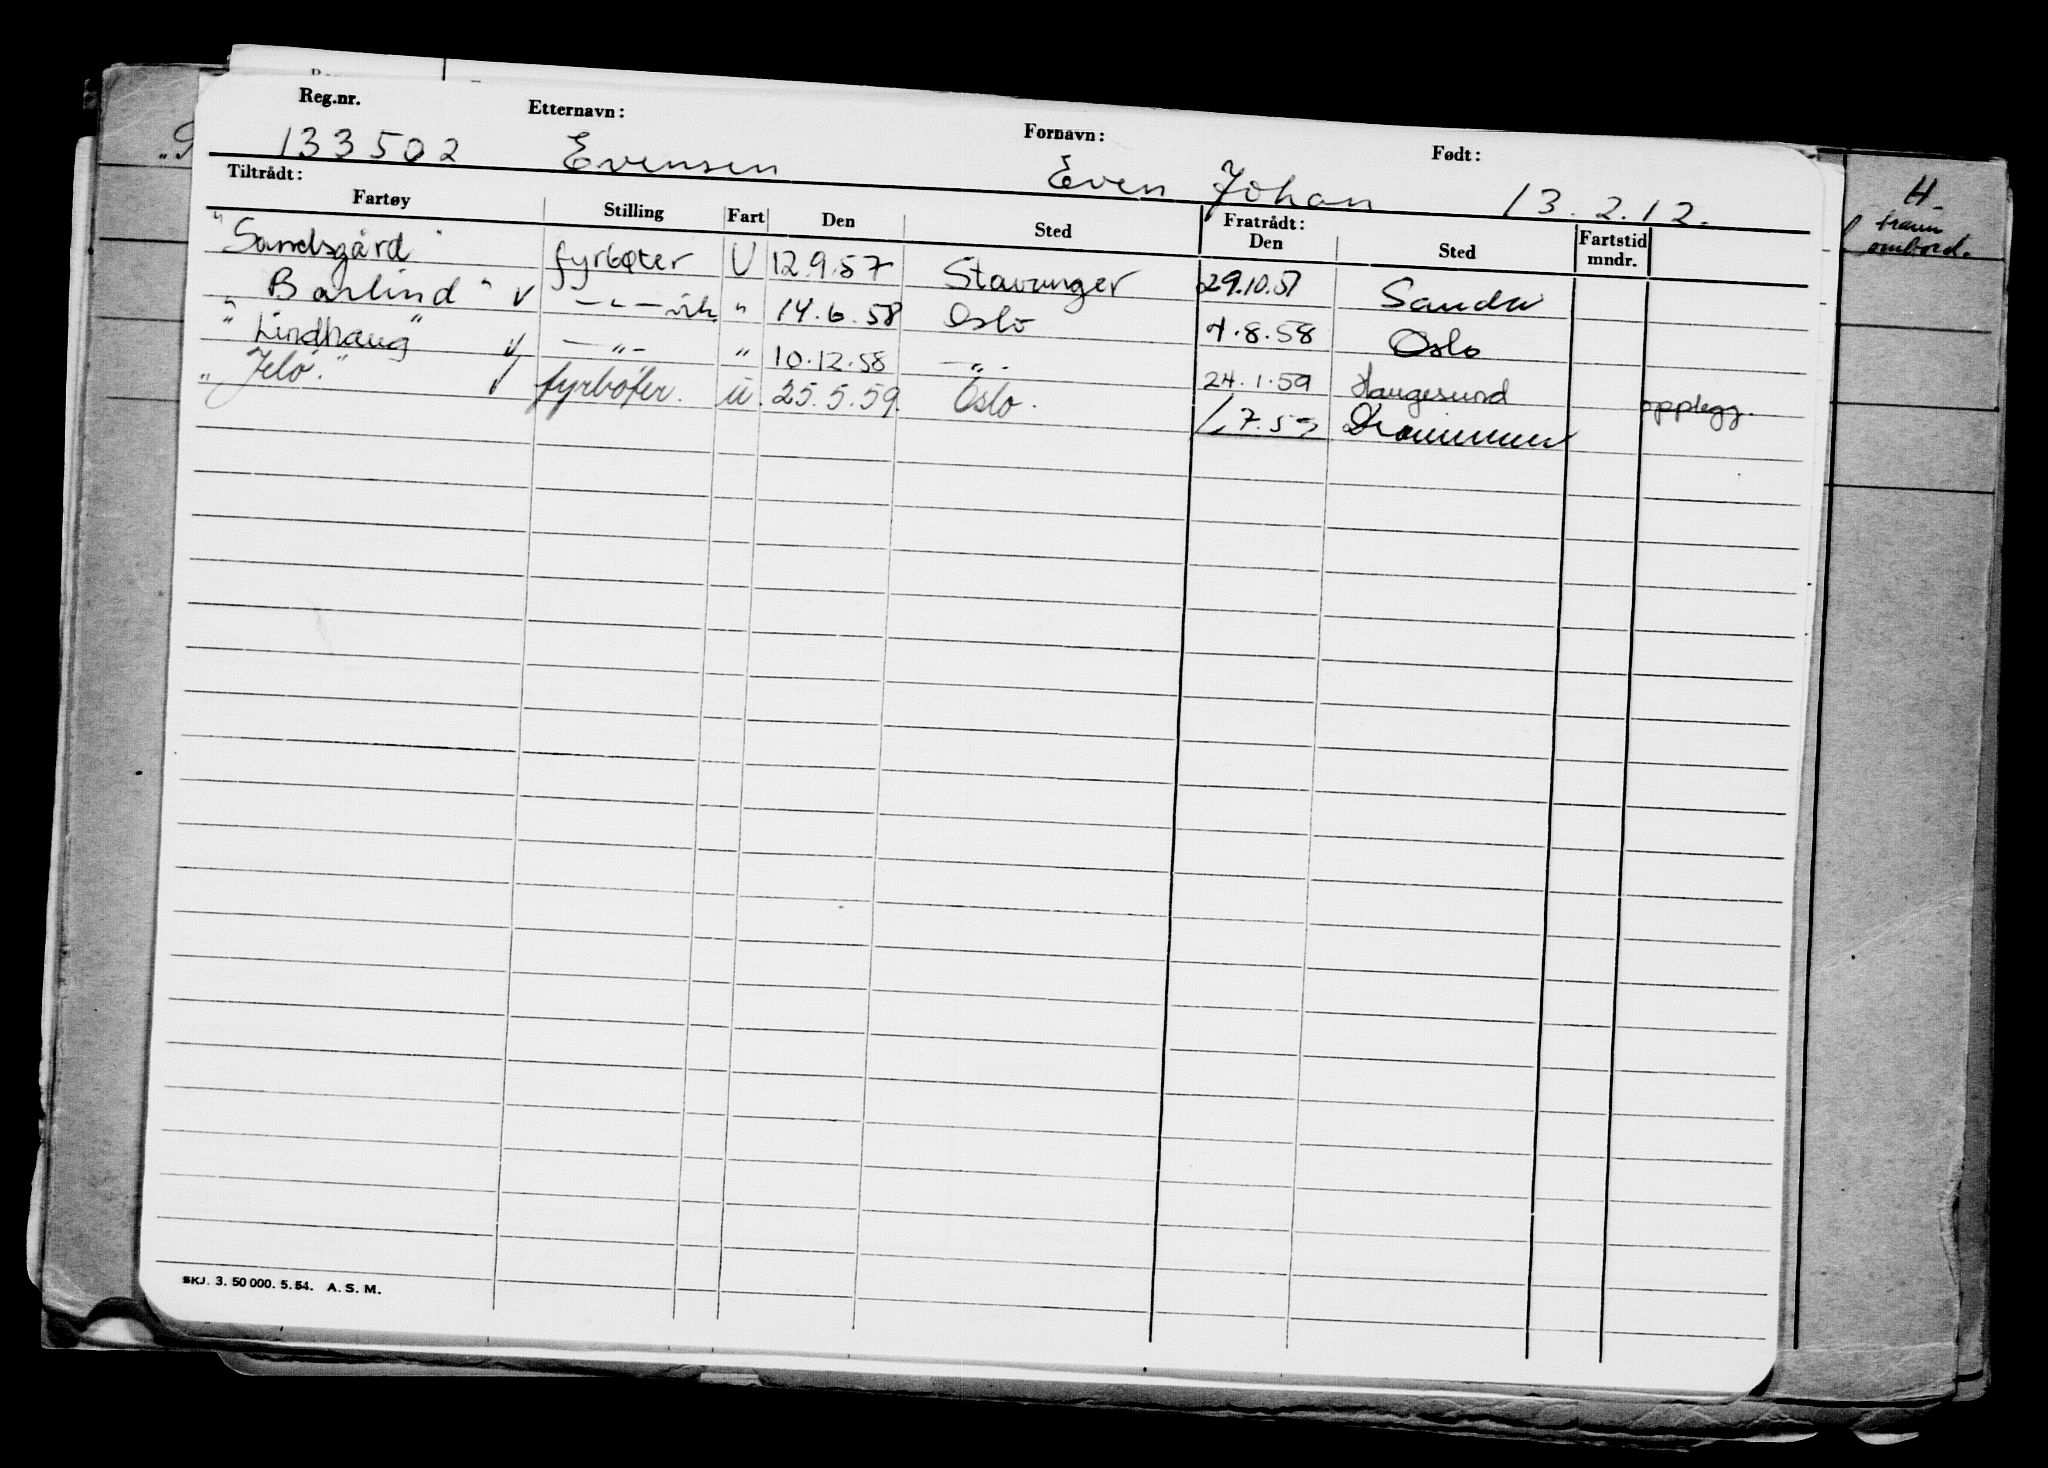 Reg.nr. Etternavn: Fornavn: Født:
133502 Evensen Even Johan 13.2.12.
Tiltrådt: Fratrådt:
Fartøy Stilling Fart Den Sted Den Sted Fartstid mndr.
"Sandsgård" fyrbøter U 12.9.57 Stavanger 29.10.57
"Barlind" v — " — " 14.6.58 Oslo 4.8.58 Oslo
"Lindhaug" v — " — " 10.12.58 — " — 24.1.59 Haugesund opplegg.
"Jelø." v fyrbøter. u. 25.5.59. Oslo. 7.59 Drammen
SKJ. 3. 50 000. 5. 54. A. S. M.
H.
fram
ombord.